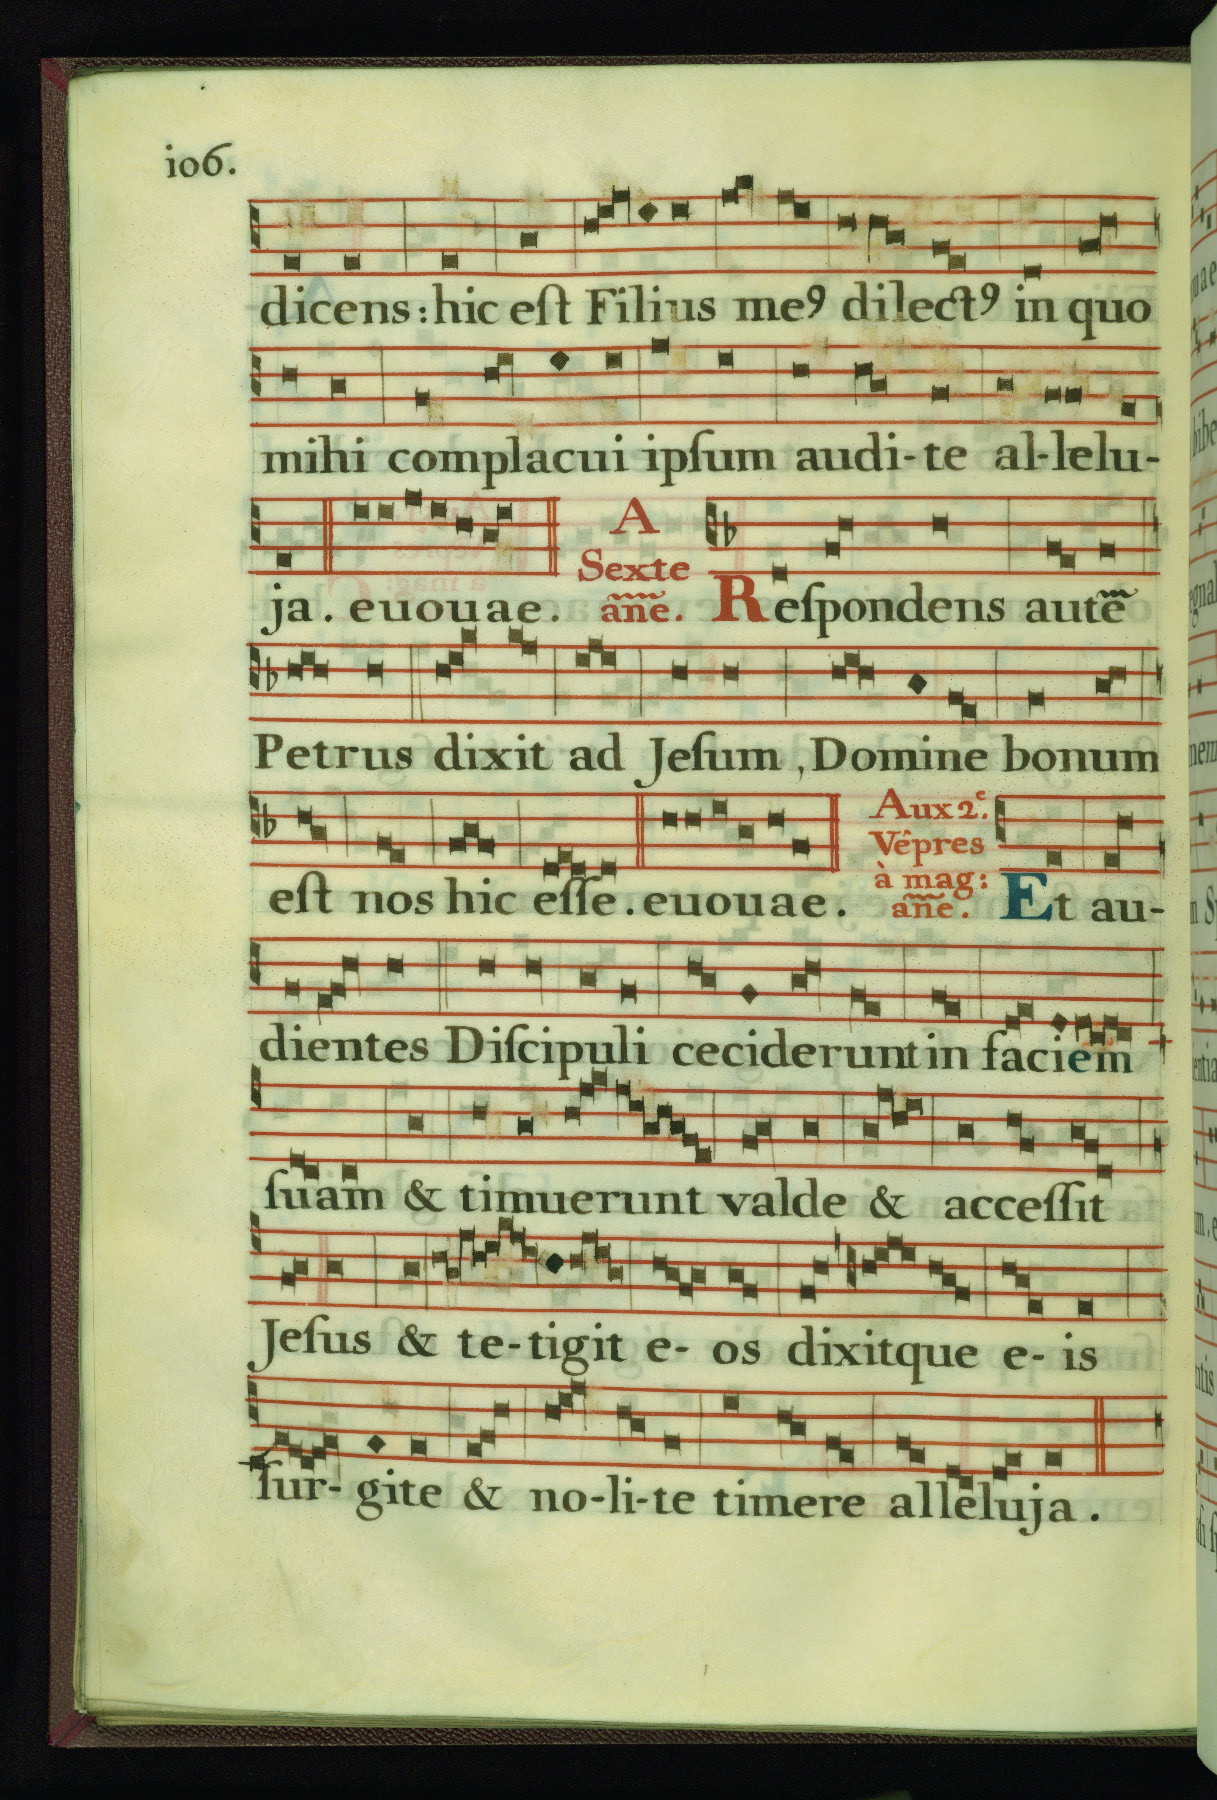 io6.
dicens: hic eſt Filius meꝰ dilectꝰ in quo
mihi complacui ipſum audi-te al-lelu-
ja. euouae. A Sexte añe. Reſpondens autẽ
Petrus dixit ad Jeſum, Domine bonum
eſt nos hic eſſe. euouae. Aux 2.e Vêpres à mag: añe. Et au-
dientes Diſcipuli ceciderunt in faciem
ſuam & timuerunt valde & acceſſit
Jeſus & te-tigit e- os dixitque e- is
ſur- gite & no-li-te timere alleluja.